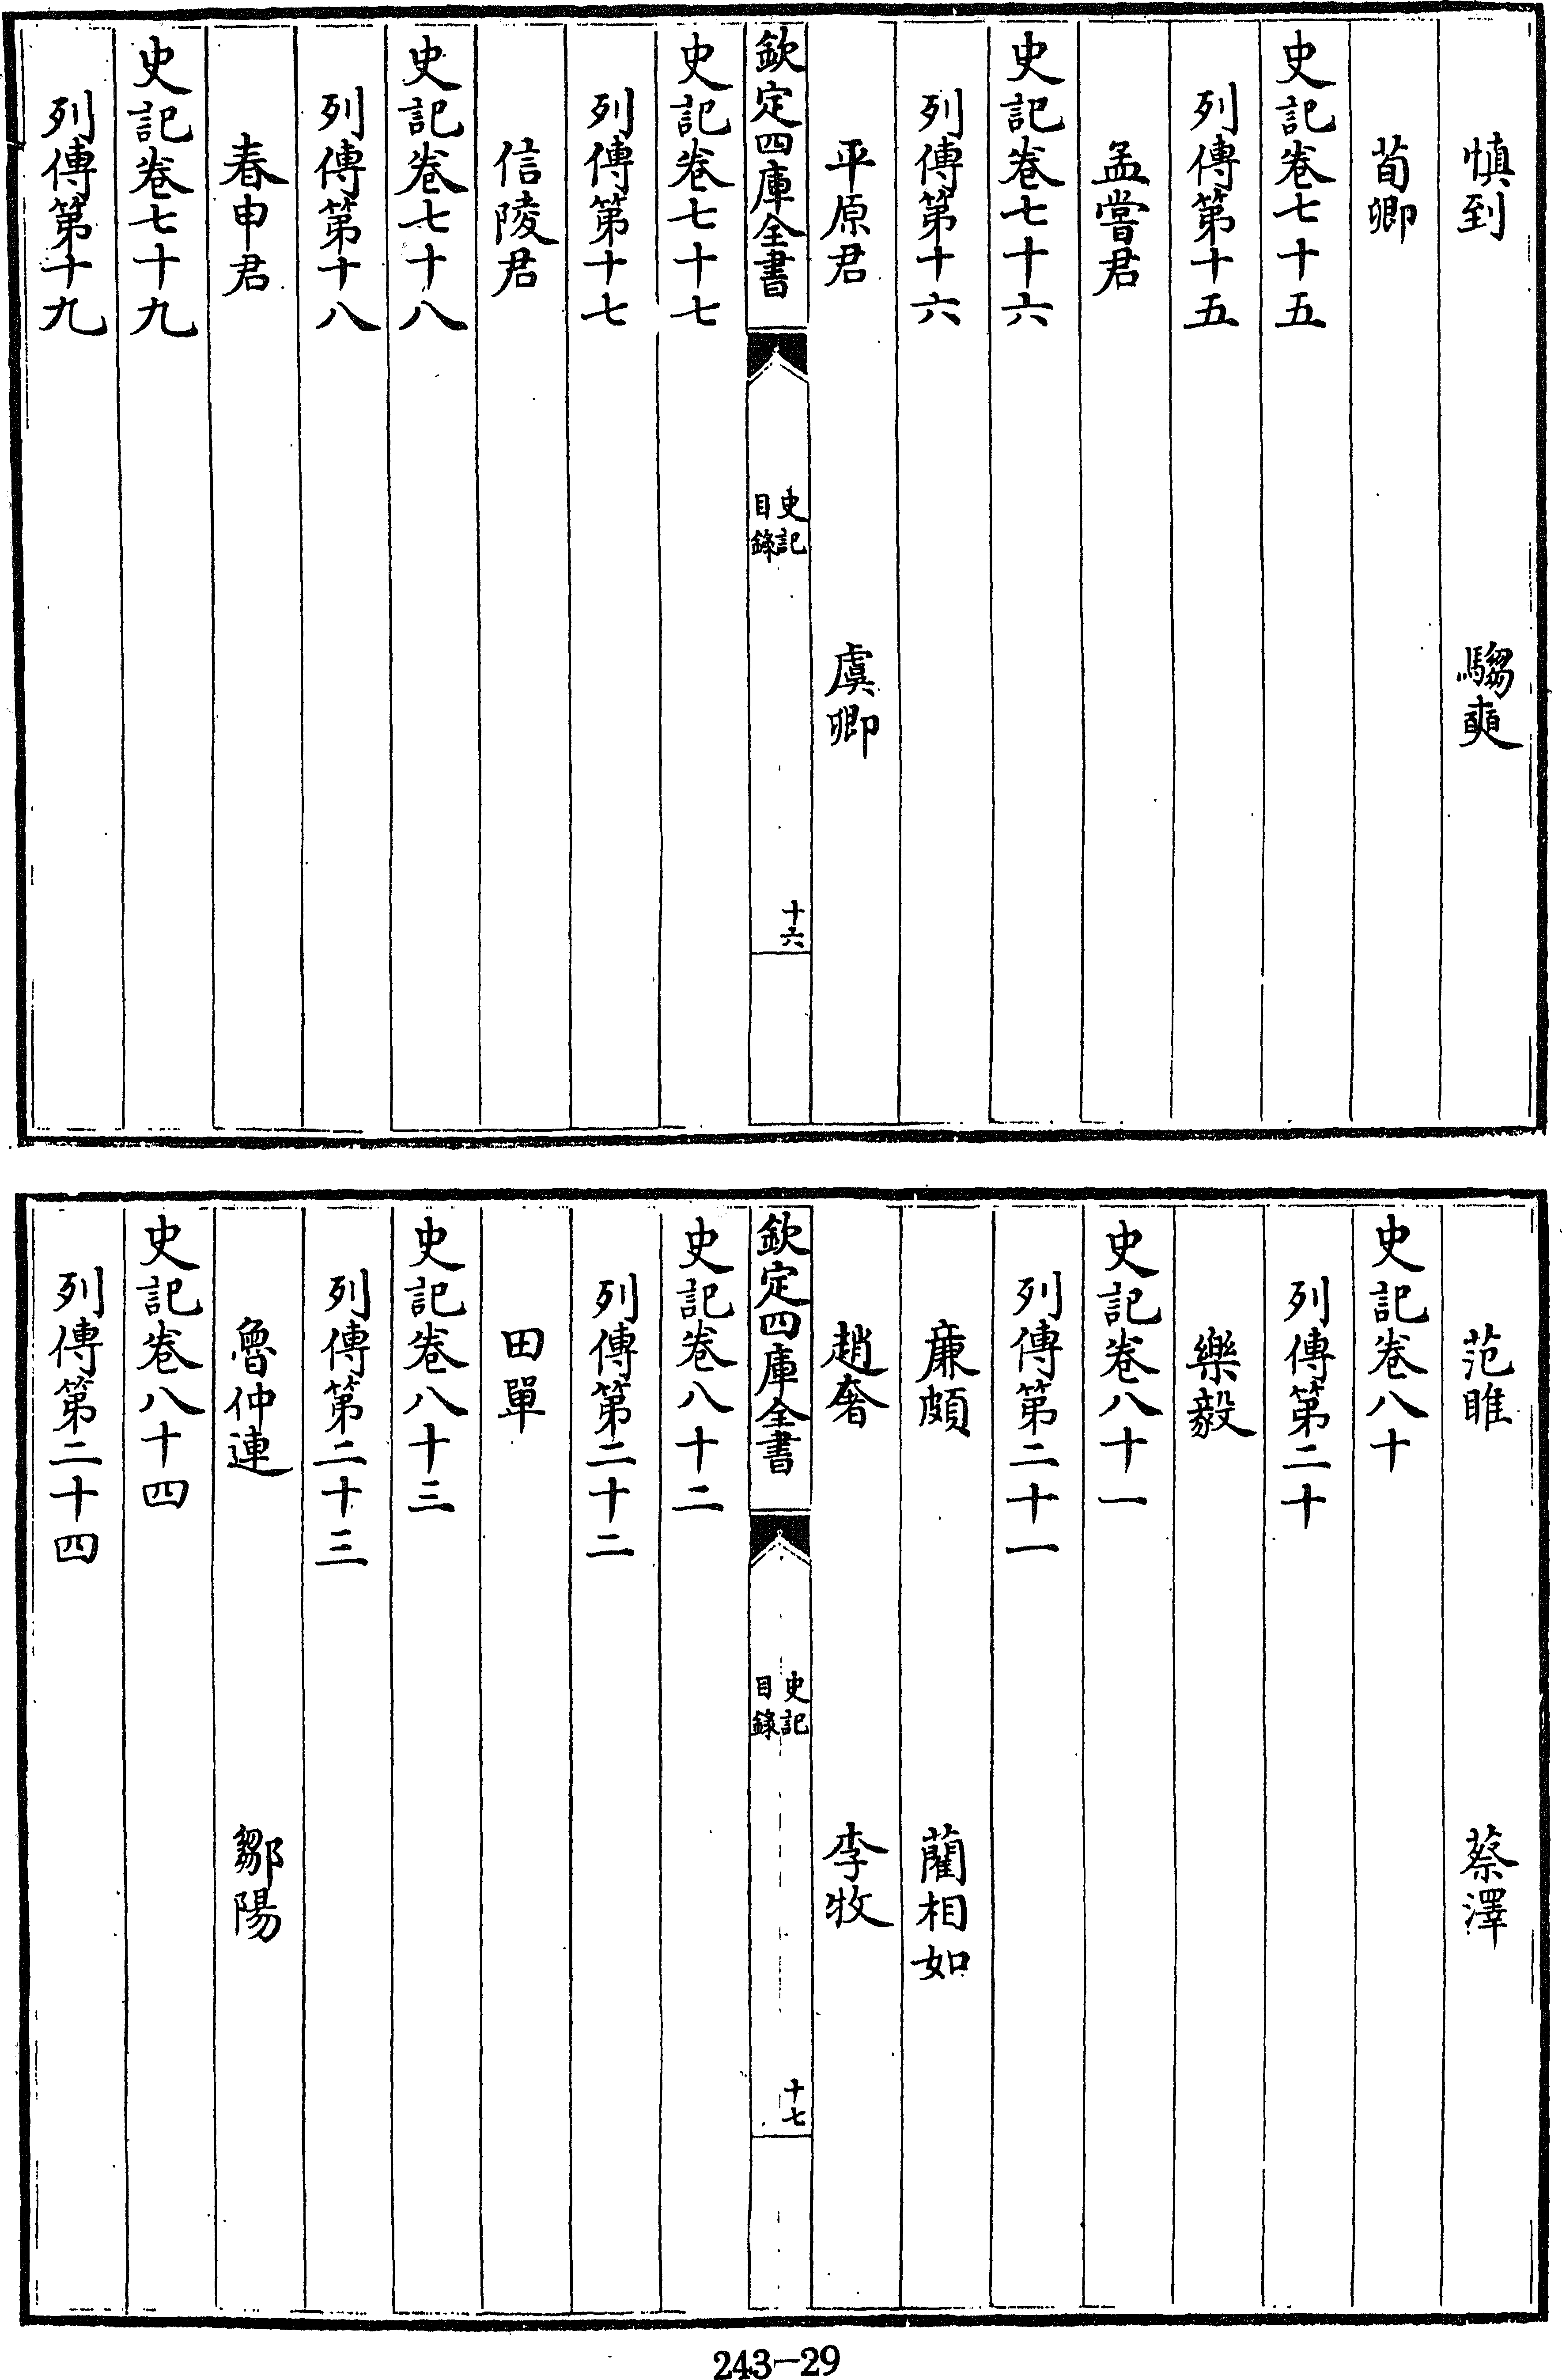 慎到　騶奭
荀卿
史記卷七十五
列傳第十五
孟嘗君
史記卷七十六
列傳第十六
平原君　虞卿
欽定四庫全書　史記目錄　十六
史記卷七十七
列傳第十七
信陵君
史記卷七十八
列傳第十八
春申君
史記卷七十九
列傳第十九
范睢　蔡澤
史記卷八十
列傳第二十
樂毅
史記卷八十一
列傳第二十一
廉頗　藺相如
趙奢　李牧
欽定四庫全書　史記目錄　十七
史記卷八十二
列傳第二十二
田單
史記卷八十三
列傳第二十三
魯仲連　鄒陽
史記卷八十四
列傳第二十四
243-29